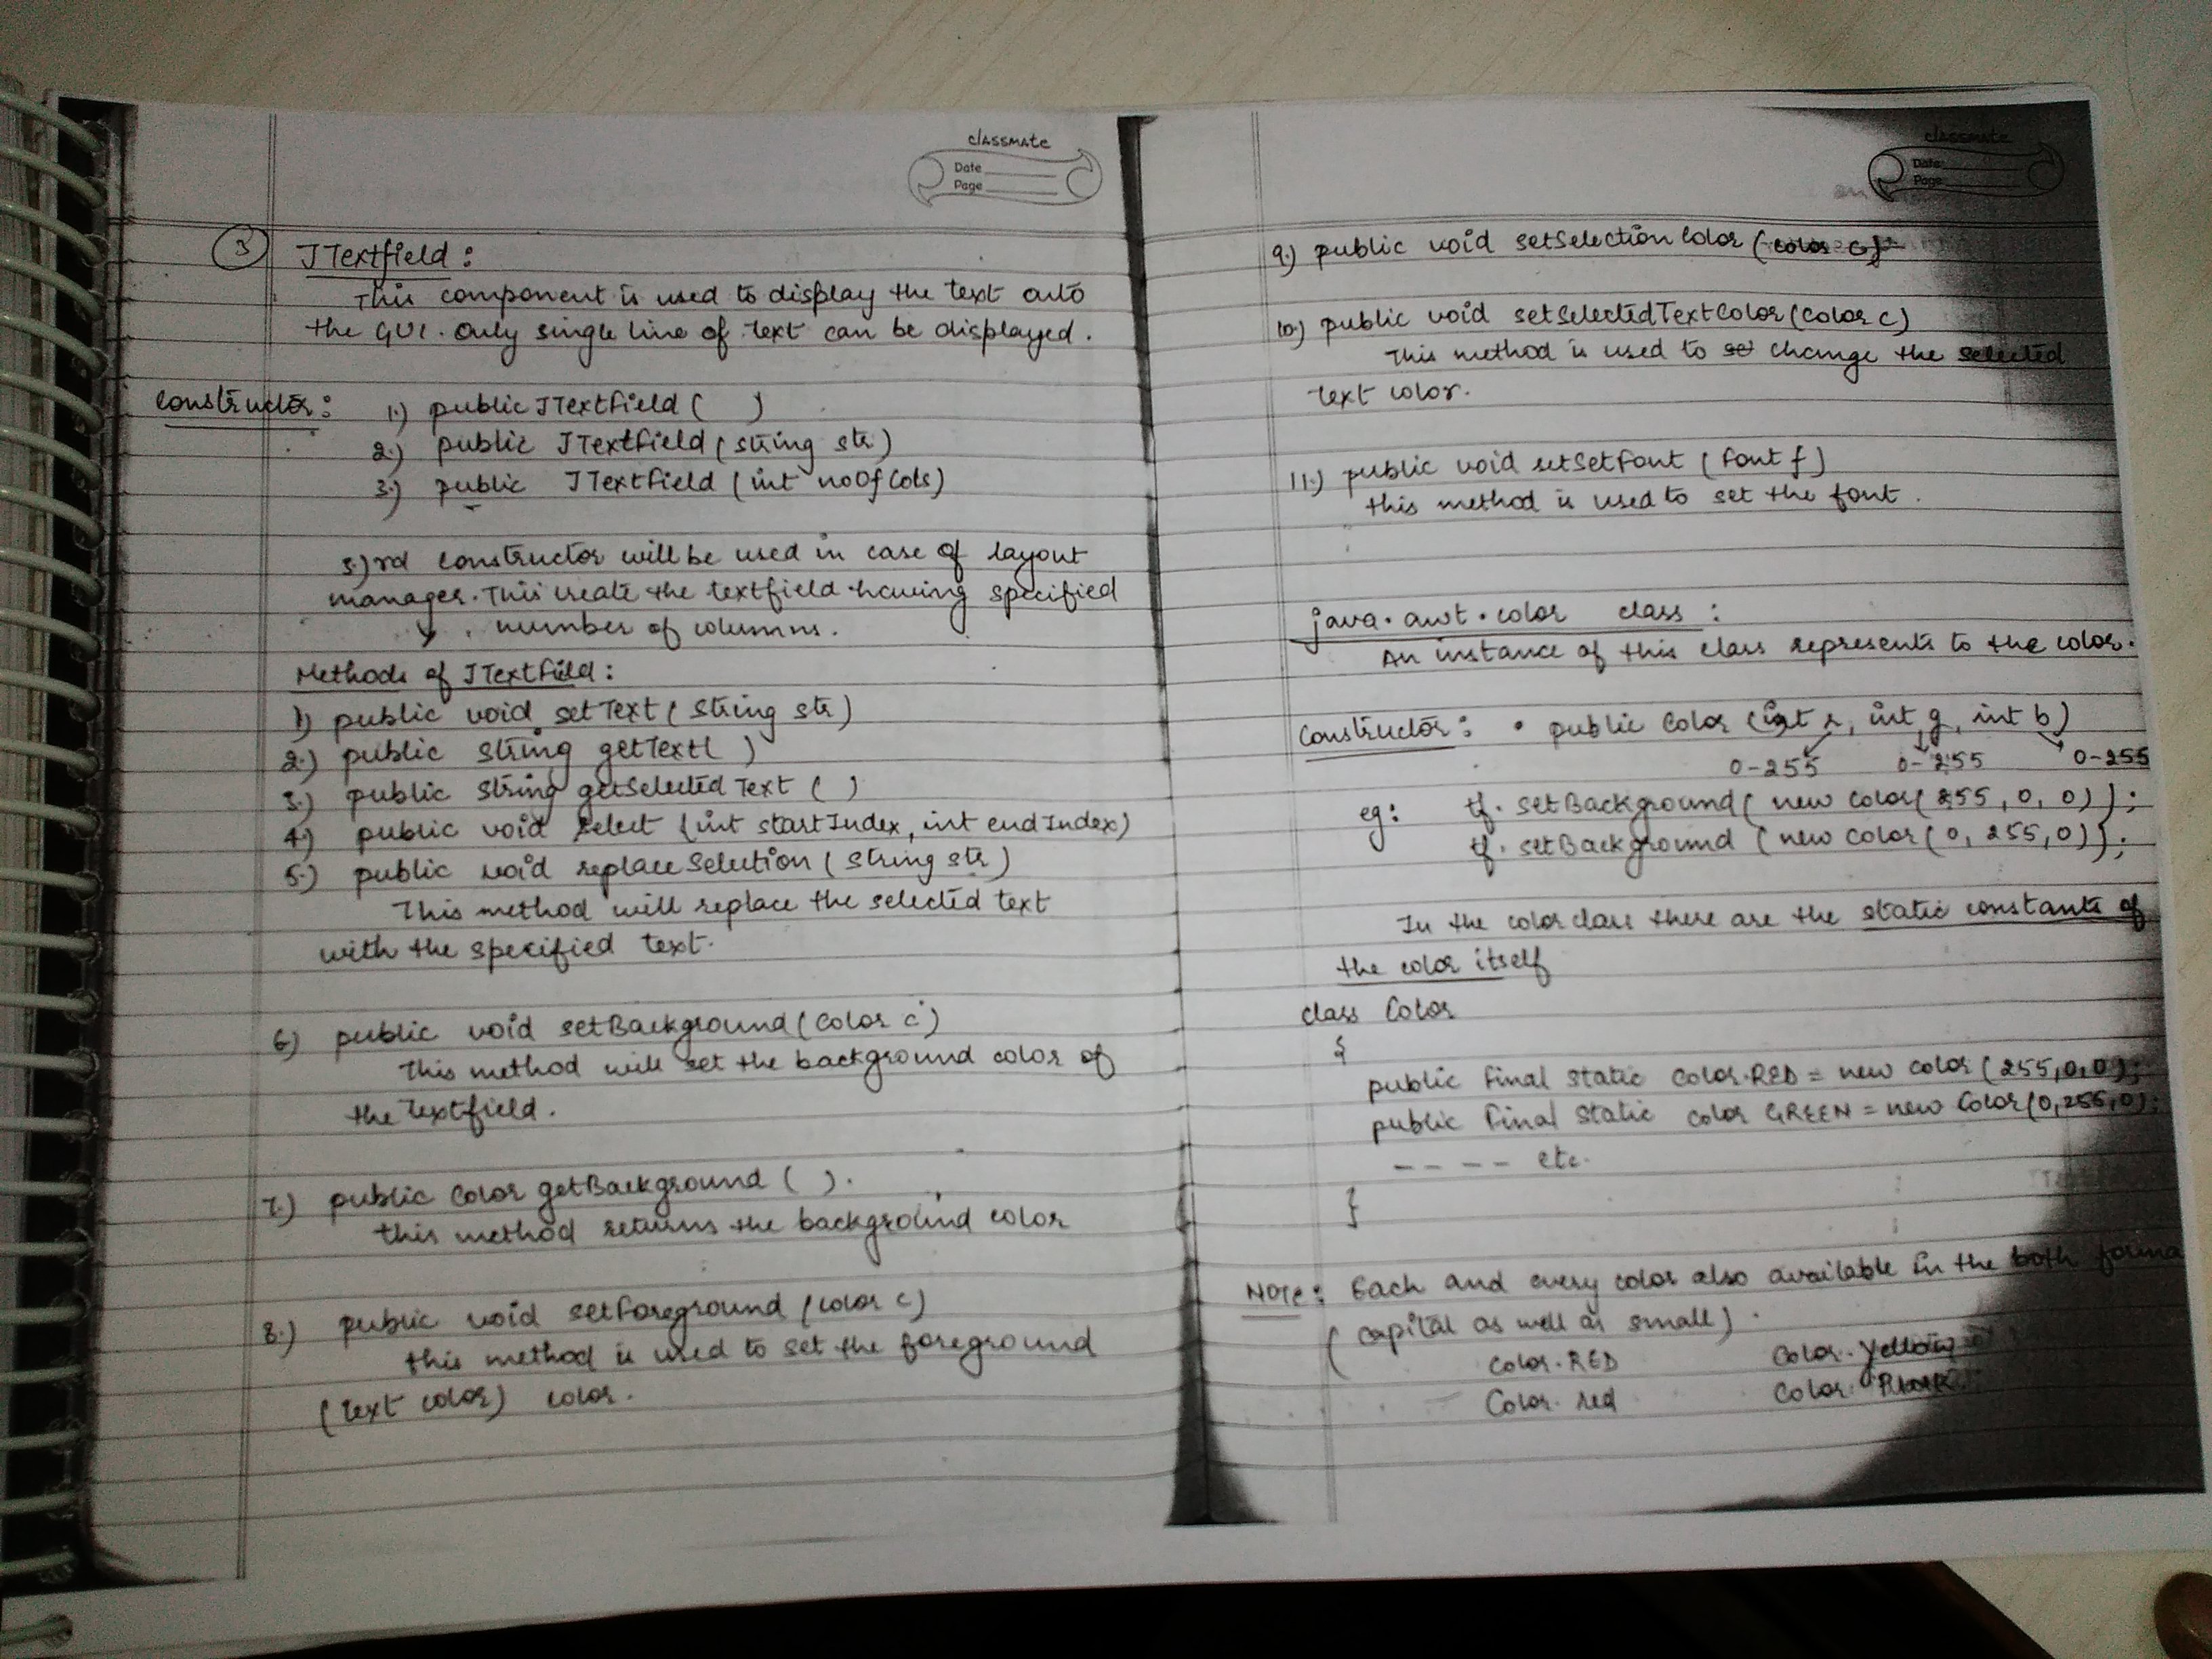 classmate
Date
Page
3 JTextfield:
This component is used to display the text onto
the GUI. Only single line of text can be displayed.
Constructor: 1.) public JTextField( )
2.) public JTextField(string str)
3.) public JTextField(int noOfCols)
3.)rd constructor will be used in case of layout
manager. This create the textfield having specified
number of columns.
Methods of JTextField:
1) public void setText(String str)
2.) public string getText( )
3.) public string getSelectedText( )
4.) public void select (int startIndex, int endIndex)
5.) public void replaceSelection (string str)
This method will replace the selected text
with the specified text.
6) public void setBackground(Color c)
This method will set the background color of
the Textfield.
7.) public Color getBackground ( ).
this method returns the background color
8.) public void setForeground (color c)
this method is used to set the foreground
(text color) color.
classmate
Date
Page
9.) public void setSelectionColor (color c)
10.) public void setSelectedTextColor(color c)
This method is used to se change the selected
text color.
11.) public void setSetFont (font f)
this method is used to set the font.
java.awt.color class:
An instance of this class represents to the color.
Constructor: • public Color (int r, int g, int b)
0-255 0-255 0-255
eg: tf. setBackground( new color(255, 0, 0));
tf. setBackground (new color(0, 255, 0));
In the color class there are the static constants of
the color itself
class Color
{
public final static color.RED = new color (255,0,0);
public final static color GREEN = new Color(0,255,0);
---- etc.
}
Note: Each and every color also available in the both forma
(capital as well as small).
Color.RED Color.Yellow
Color.red Color.